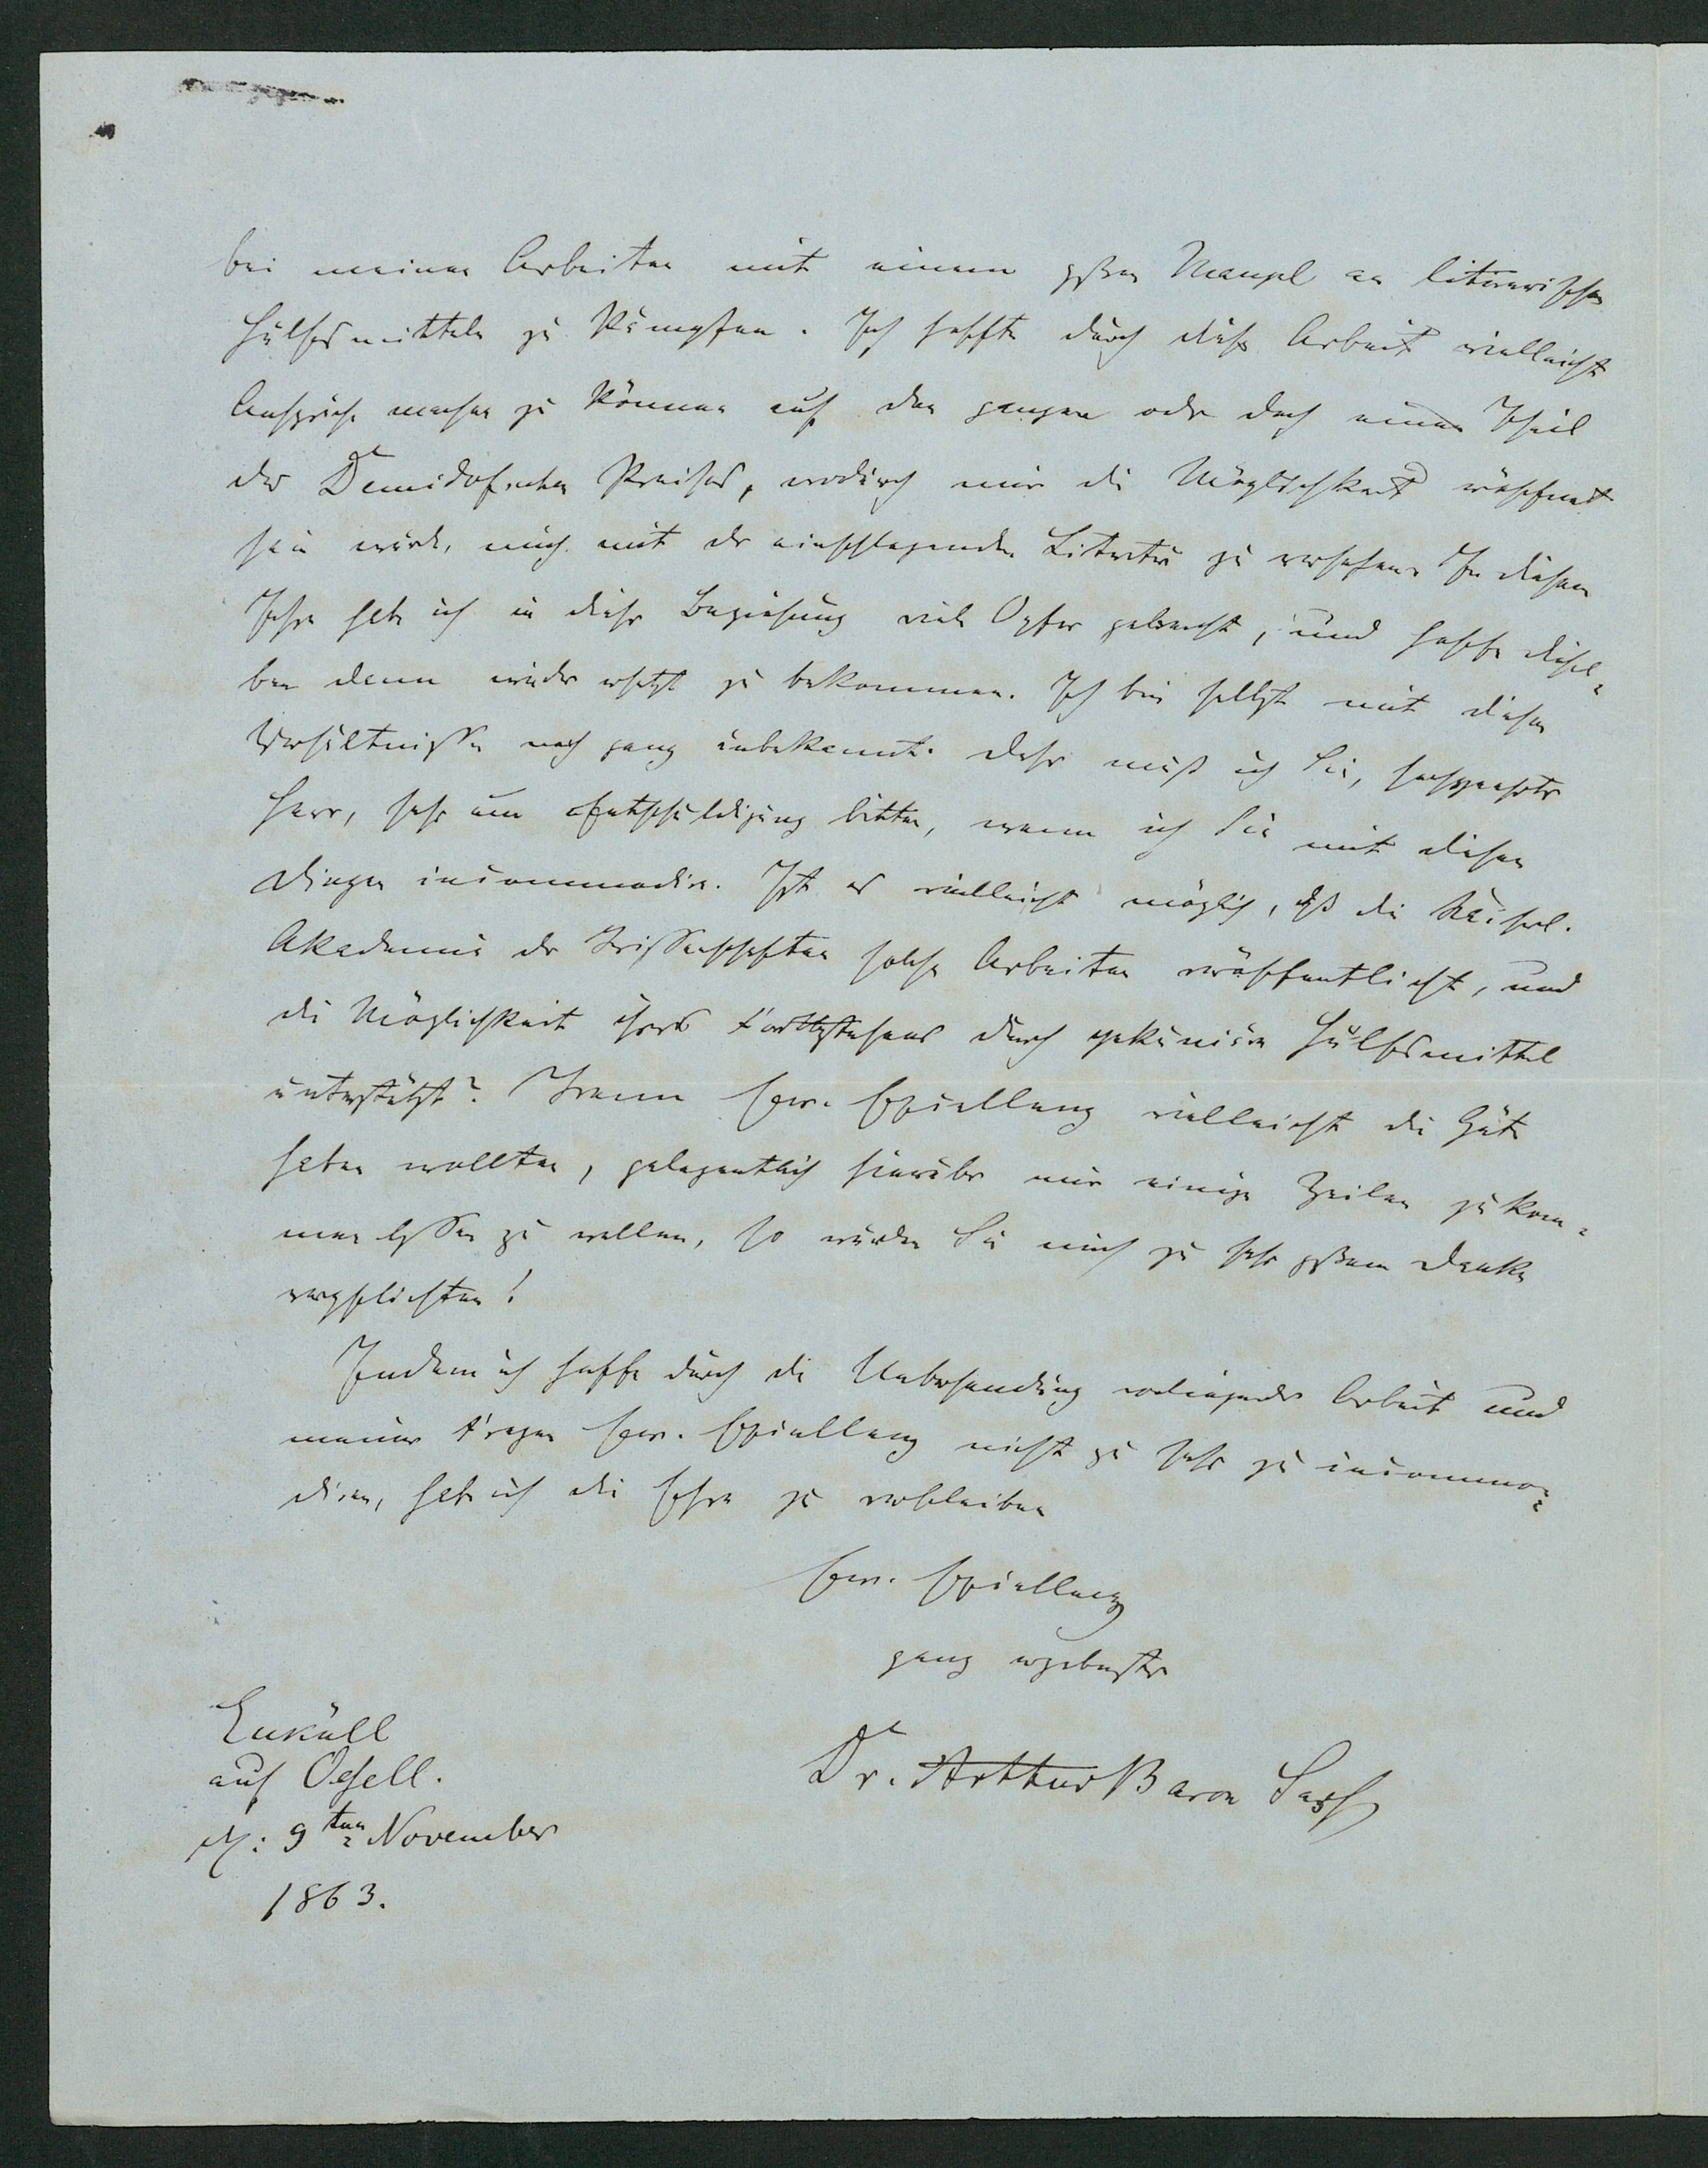 bei meinen Arbeiten mit einem großen Mangel an literarischen
Hülfsmitteln zu kämpfen. Ich hoffte durch diese Arbeit vielleicht
Ansprüche machen zu können auf den ganzen oder doch einen Theil
des Demidofschen Preises, wodurch mir die Möglichkeit eröffnet
sein würde, mich mit der einschlagenden Literatur zu versehen. In diesem
Jahre habe ich in dieser Beziehung viele Opfer gebracht, und hoffe diesel-
ben dann wieder ersetzt zu bekommen. Ich bin selbst mit diesen
Verhältnissen noch ganz unbekannt. Daher muß ich Sie, hochgeehrter
Herr, sehr um Entschuldigung bitten, wenn ich Sie mit diesen
Dingen incommodire. Ist es vielleicht möglich, daß die Kaiserl.
Akademie der Wissenschaften solche Arbeiten veröffentlicht, und
die Möglichkeit ihres Fortbestehens durch pekuniäre Hülfsmittel
unterstützt? Wenn Ew. Excellenz vielleicht die Güte
haben wollten, gelegentlich hierüber mir einige Zeilen zukom-
men lassen zu wollen, so würden Sie mich zu sehr großem Danke
verpflichten!
Indem ich hoffe durch die Uebersendung vorliegender Arbeit und
meiner Fragen Ew. Excellenz nicht zu sehr zu incommo-
diren, habe ich die Ehre zu verbleiben
Ew. Excellenz
ganz ergebenster
Dr. Arthur Baron Sass
Euküll
auf Oesell.
d: 9ten November
1863.